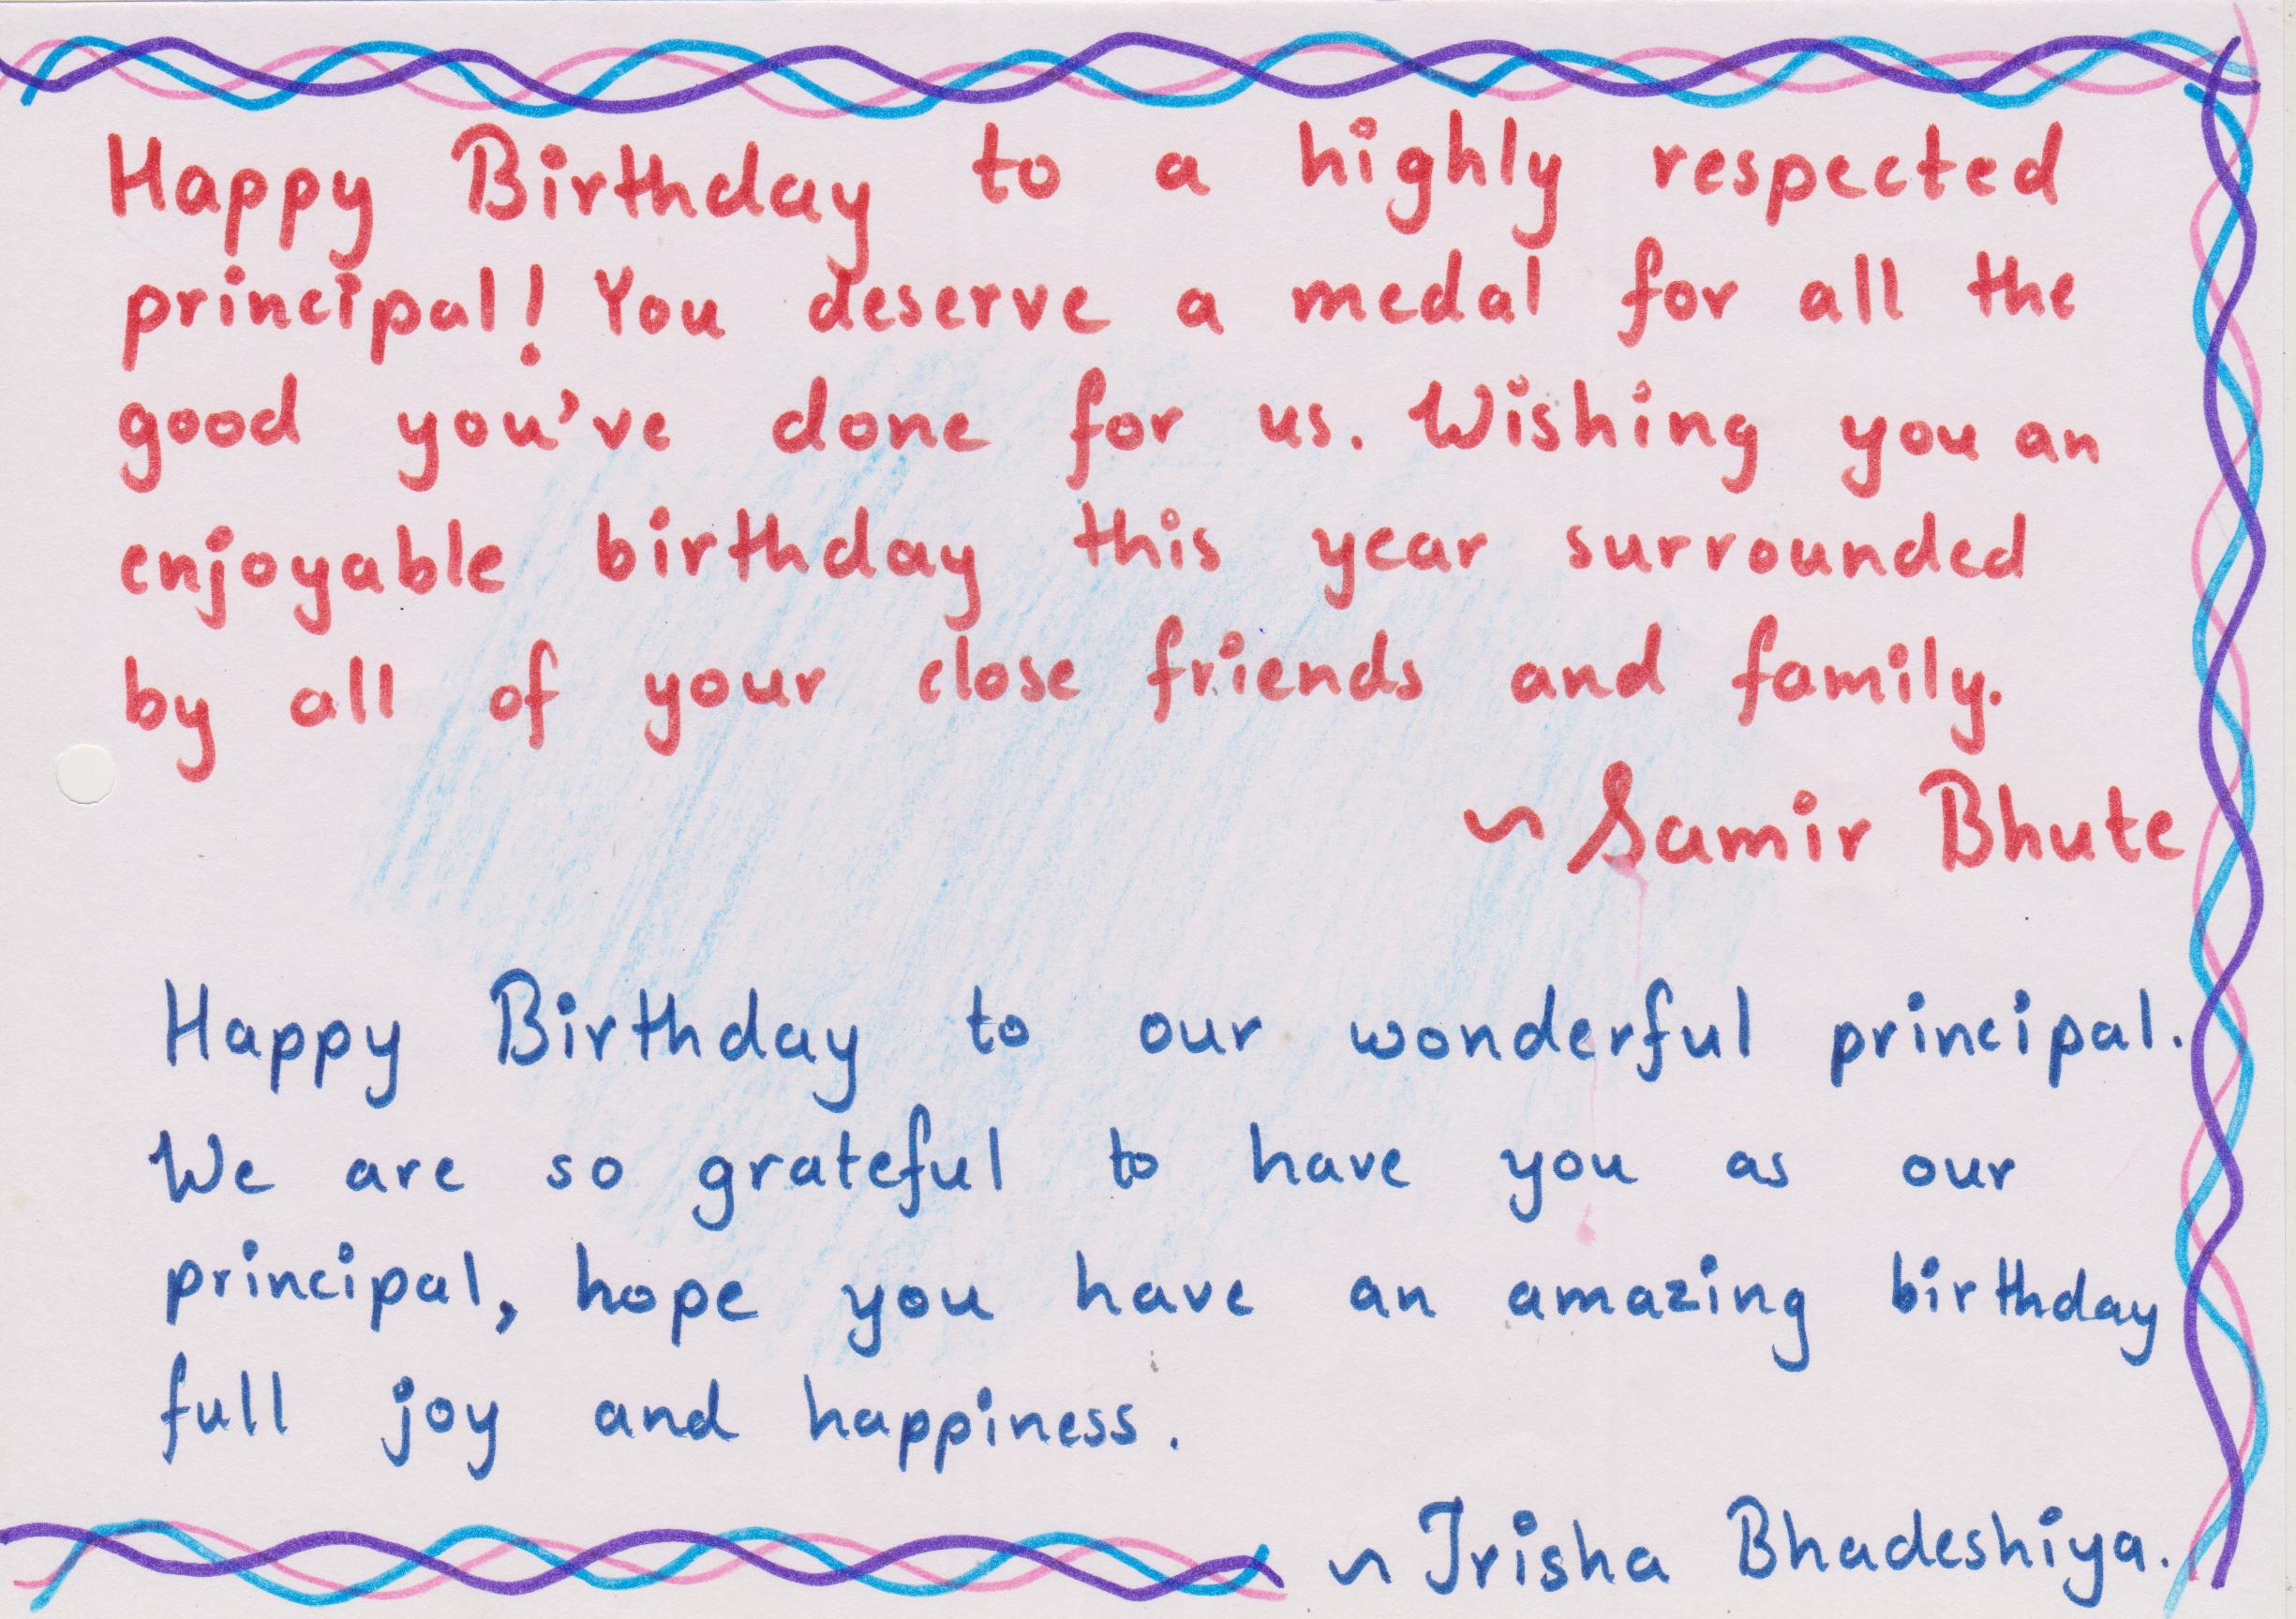 Happy Birthday to a highly respected
principal! You deserve a medal for all the
good you've done for us. Wishing you an
enjoyable birthday this year surrounded
by all of your close friends and family.
~ Samir Bhute
Happy Birthday to our wonderful principal.
We are so grateful to have you as our
principal, hope you have an amazing birthday
full joy and happiness.
~ Trisha Bhadeshiya.